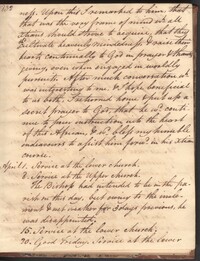 132
ness. Upon this I remarked to him, that
that was the very frame of mind we all
should strive to acquire, that they
cultivate heavenly mindedness, & raise their
hearts continually to God in prayer & thanks
giving, even when engaged in worldly
pursuits. After much conversation at
was intimating to me, & I hope beneficial
to us both, I returned home & put up a
secret prayer to God, that he wd. con
tinue to pour instruction into the heart
of this African, & wd. bless my humble
endeavours to assist him forw. in his xtian
course.
April 1. Service at the lower church.
8. Service at the upper church.
The Bishop had intended to be in the pa
rish on this day, but owing to the incle
ment & wet weather for 3 days previous, he
was disappointed.
15. Service at the lower church;
20. Good Friday. Service at the lower